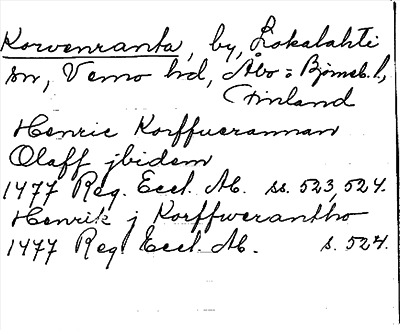 Korvenranta, by, Lokalahti
sn, Vemo hd, Åbo = Björneb. l,
Finland
Henric Korffuerannan
Olaff jbidem
1477 Reg. Eccl. Ab. ss. 523, 524.
Henrik j Korffwerantho
1477 Reg. Eccl. Ab. s. 524.